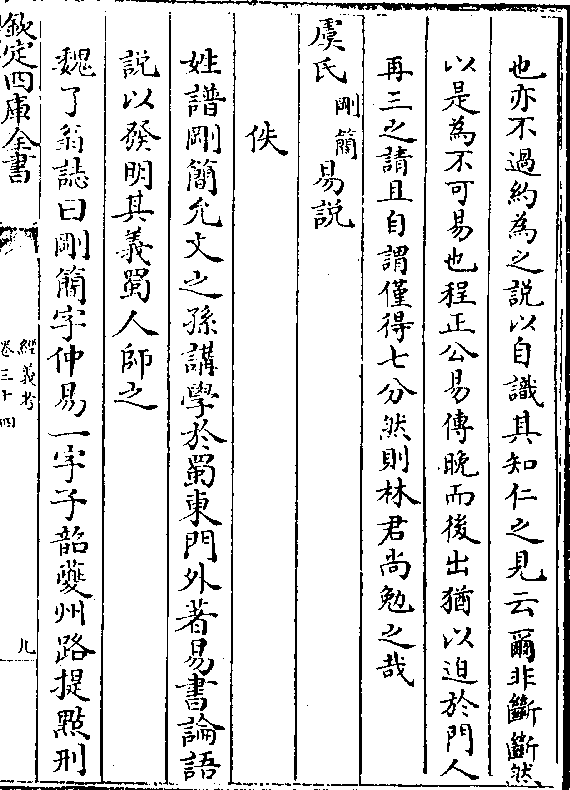 也亦不過約為之説以自識其知仁之見云爾非斷斷然
以是為不可易也程正公易傳晚而後出猶以迫於門人
再三之請且自謂僅得七分然則林君尚勉之哉
虞氏剛簡易説
佚
姓譜剛簡允文之孫講學於蜀東門外著易書論語
説以發明其義蜀人師之
魏了翁誌曰剛簡字仲易一字子韶夔州路提㸃刑
欽定四庫全書
經義考
卷三十四
九